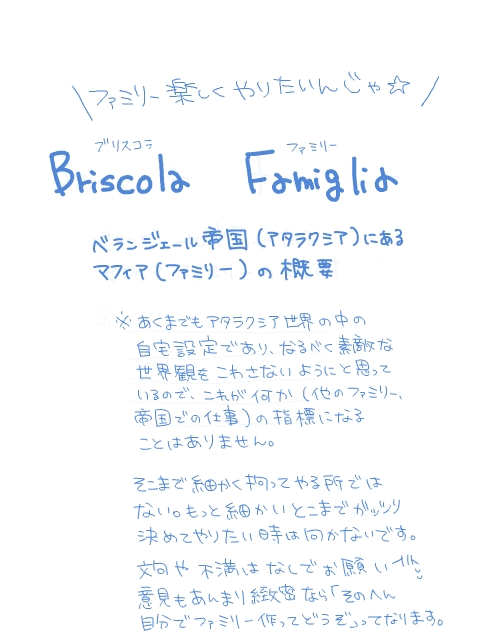 \ファミリー楽しくやりたいんじゃ☆/
ブリスコラ ファミリー
Briscola Famiglia
ベランジェール帝国(アタラクシア)にある
マフィア(ファミリー)の概要
※あくまでもアタラクシア世界の中の
自宅設定であり、なるべく素敵な
世界観をこわさないようにと思って
いるので、これが何か(他のファミリー、
帝国での仕事)の指標になる
ことはありません。
そこまで細かく拘ってやる所では
ない。もっと細かいとこまでガッツリ
決めてやりたい時は向かないです。
文句や不満はなしでお願い
意見もあんまり緻密なら「そのへん
自分でファミリー作ってどうぞ」ってなります。